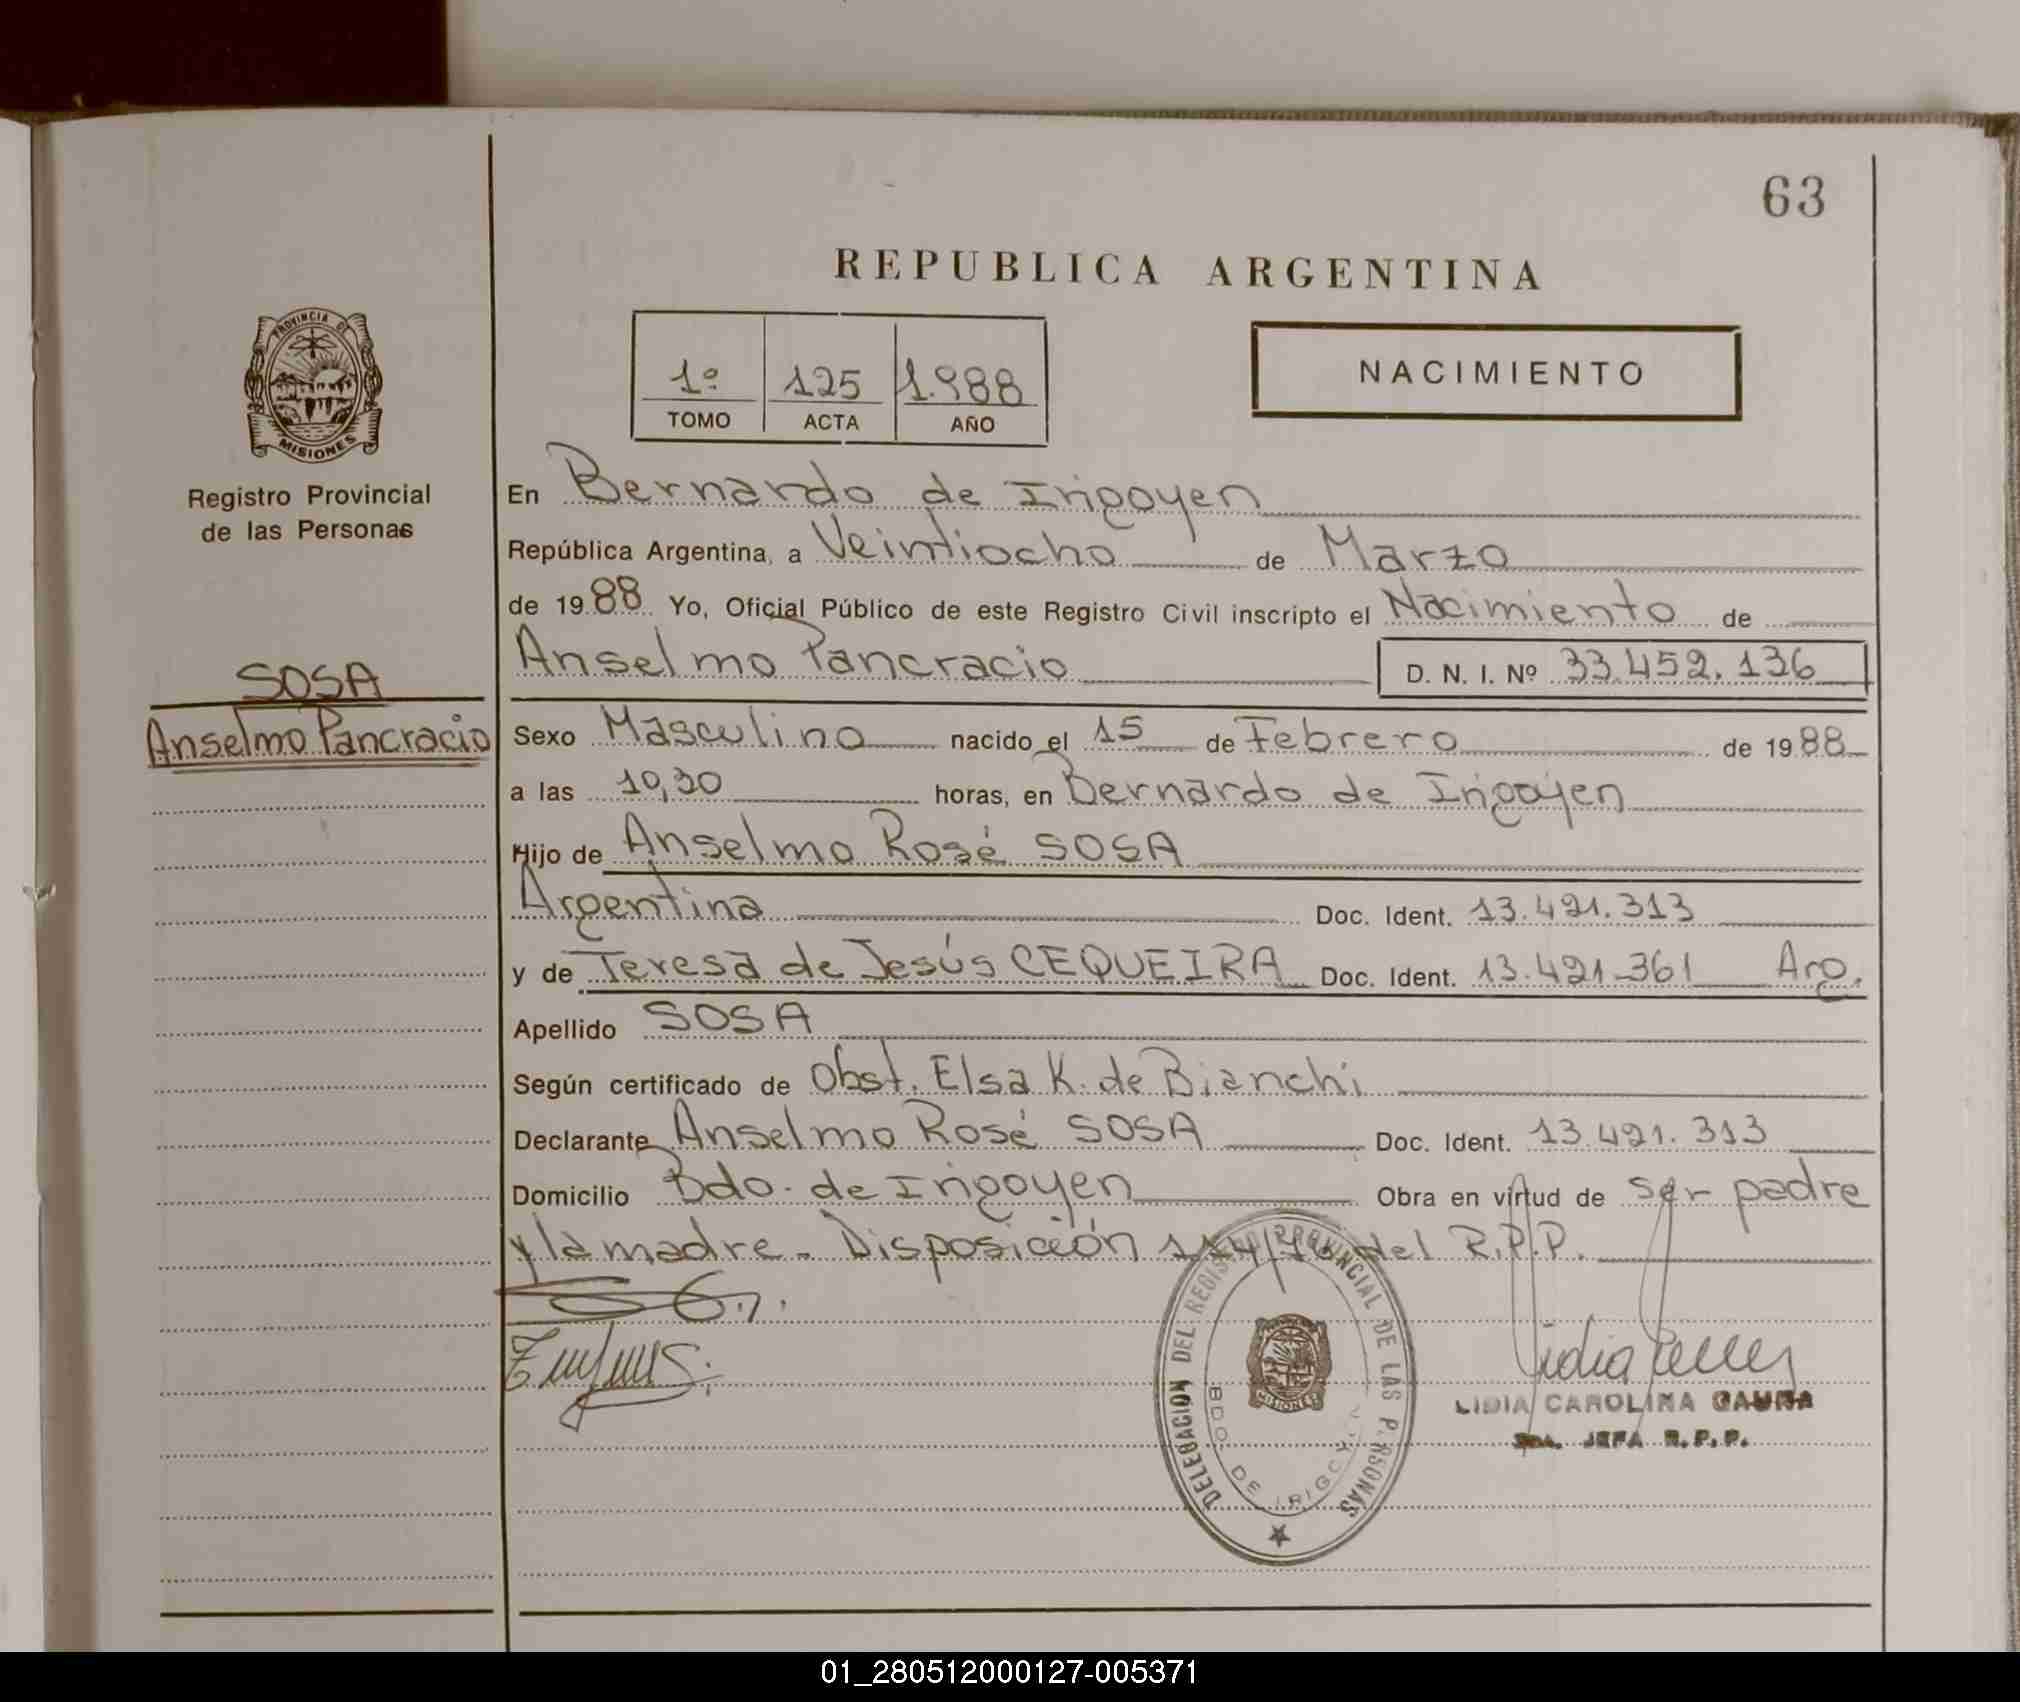 63
REPUBLICA ARGENTINA
PROVINCIA DE
MISIONES
Registro Provincial
de las Personas
1º 125 1.988
TOMO ACTA AÑO
NACIMIENTO
En Bernardo de Irigoyen
República Argentina, a Veintiocho de Marzo
de 1988 Yo, Oficial Público de este Registro Civil inscripto el Nacimiento de
Anselmo Pancracio D. N. I. Nº 33.452.136
SOSA
Anselmo Pancracio
Sexo Masculino nacido el 15 de Febrero de 1988
a las 10,30 horas, en Bernardo de Irigoyen
Hijo de Anselmo Rosé SOSA
Argentina Doc. Ident. 13.421.313
y de Teresa de Jesús CEQUEIRA Doc. Ident. 13.421.361 Arg.
Apellido SOSA
Según certificado de Obst. Elsa K. de Bianchi
Declarante Anselmo Rosé SOSA Doc. Ident. 13.421.313
Domicilio Bdo. de Irigoyen Obra en virtud de ser padre
y la madre. Disposición del R.P.P.
DELEGACION DEL REGISTRO PROVINCIAL DE LAS PERSONAS
BDO. DE IRIGOYEN
MISIONES
LIDIA CAROLINA GAUNA
JEFA R.P.P.
01_280512000127-005371